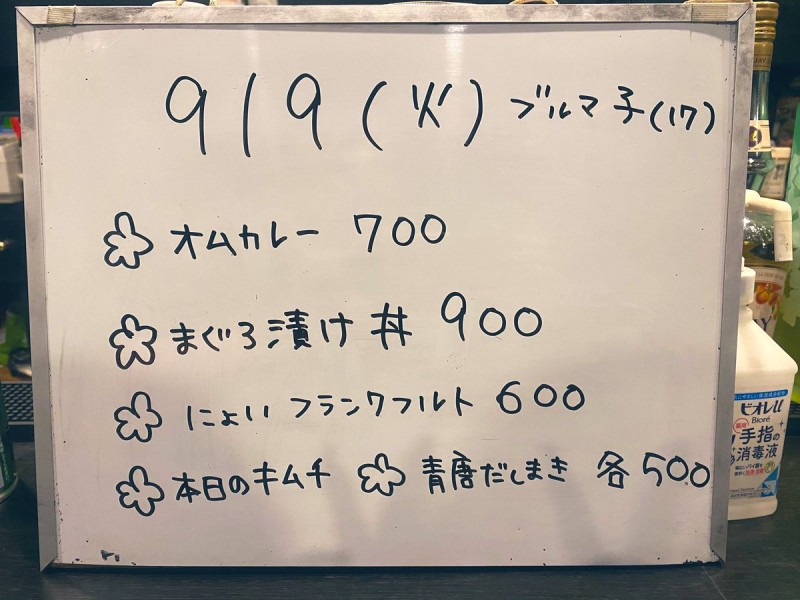 919(火)ブルマ子(17)
オムカレー 700
まぐろ漬け丼 900
にょい フランクフルト 600
本日のキムチ 青唐だしまき 各500
ビオレu
Bioré
手指の
消毒液